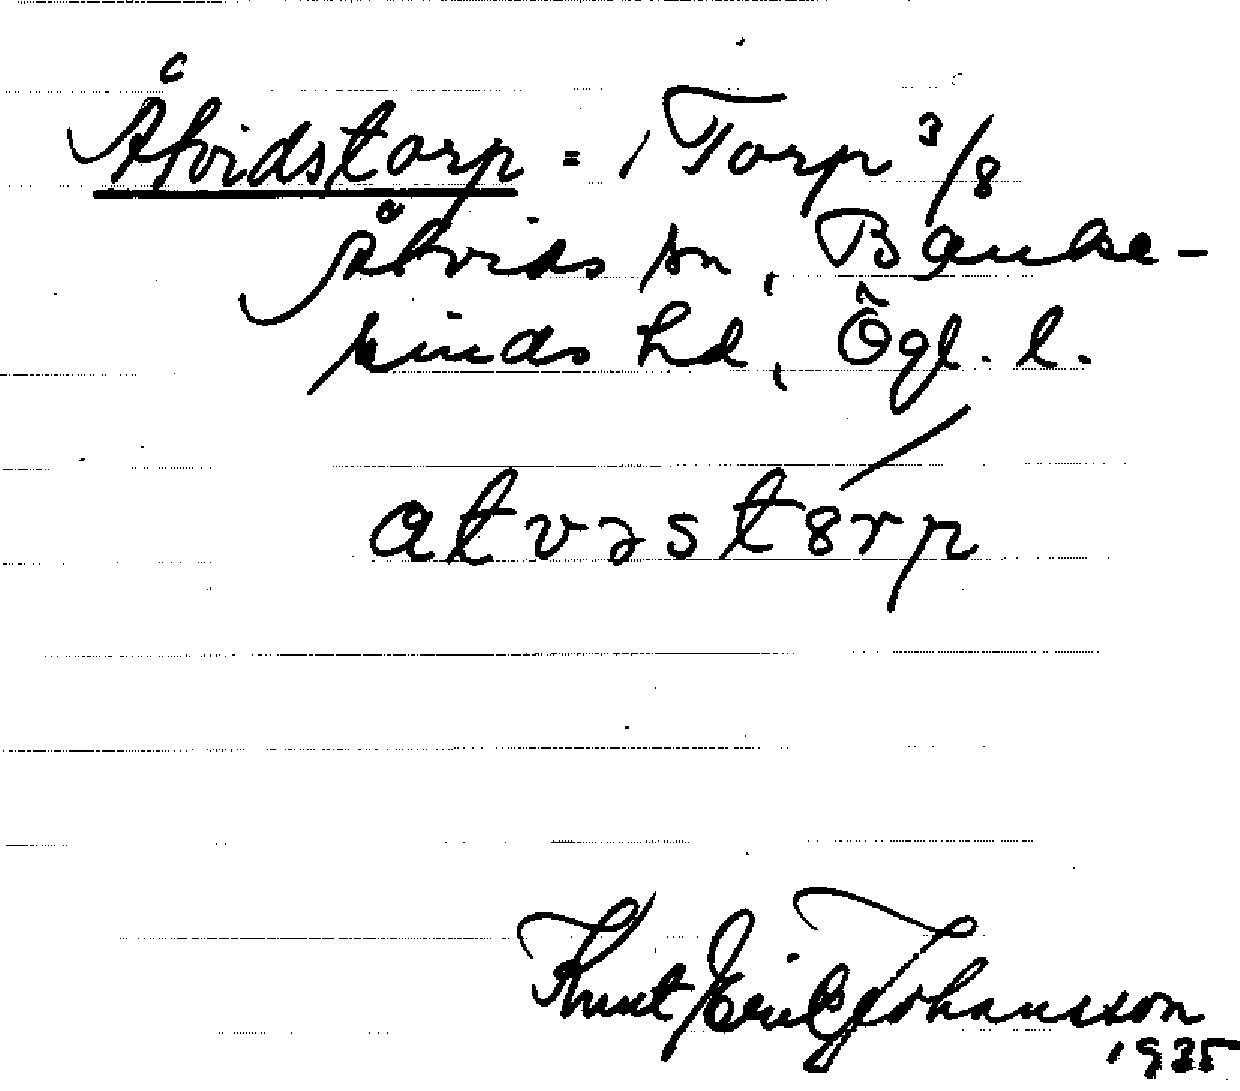 Åtvidstorp = 1 Torp 3/8
Åtvids sn, Banke-
kinds hd, Ögl. l.
Knut Erik Johansson
1935